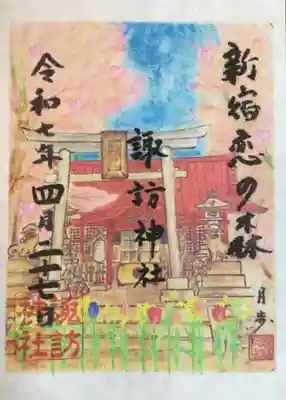 新宿恋の森
諏訪神社
令和七年 四月二十七日
月歩
諏訪
神社